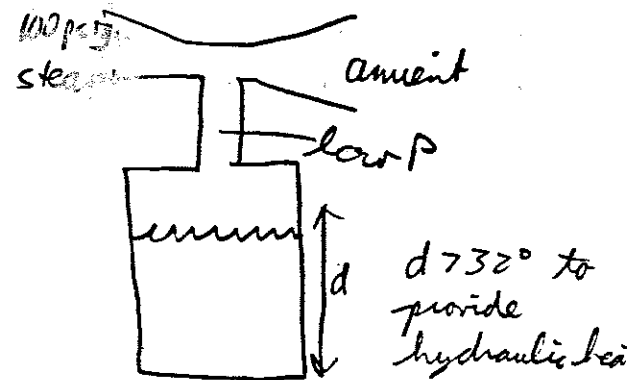 100 psig
steam
ambient
low P
d
d > 32° to
provide
hydraulic